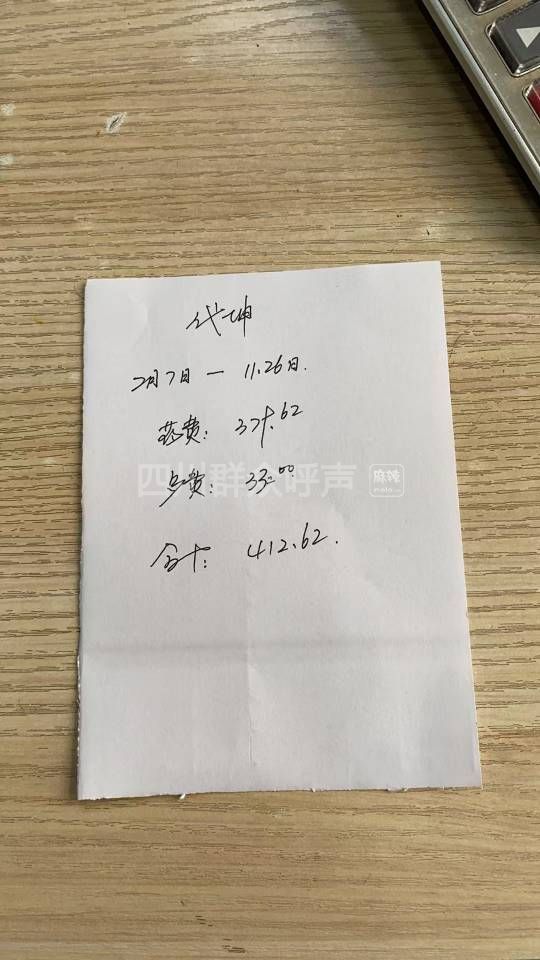 代坤
2月7日 — 11.26日.
药费: 379.62
四川群众呼声 麻辣
号费: 33.00
合计: 412.62.